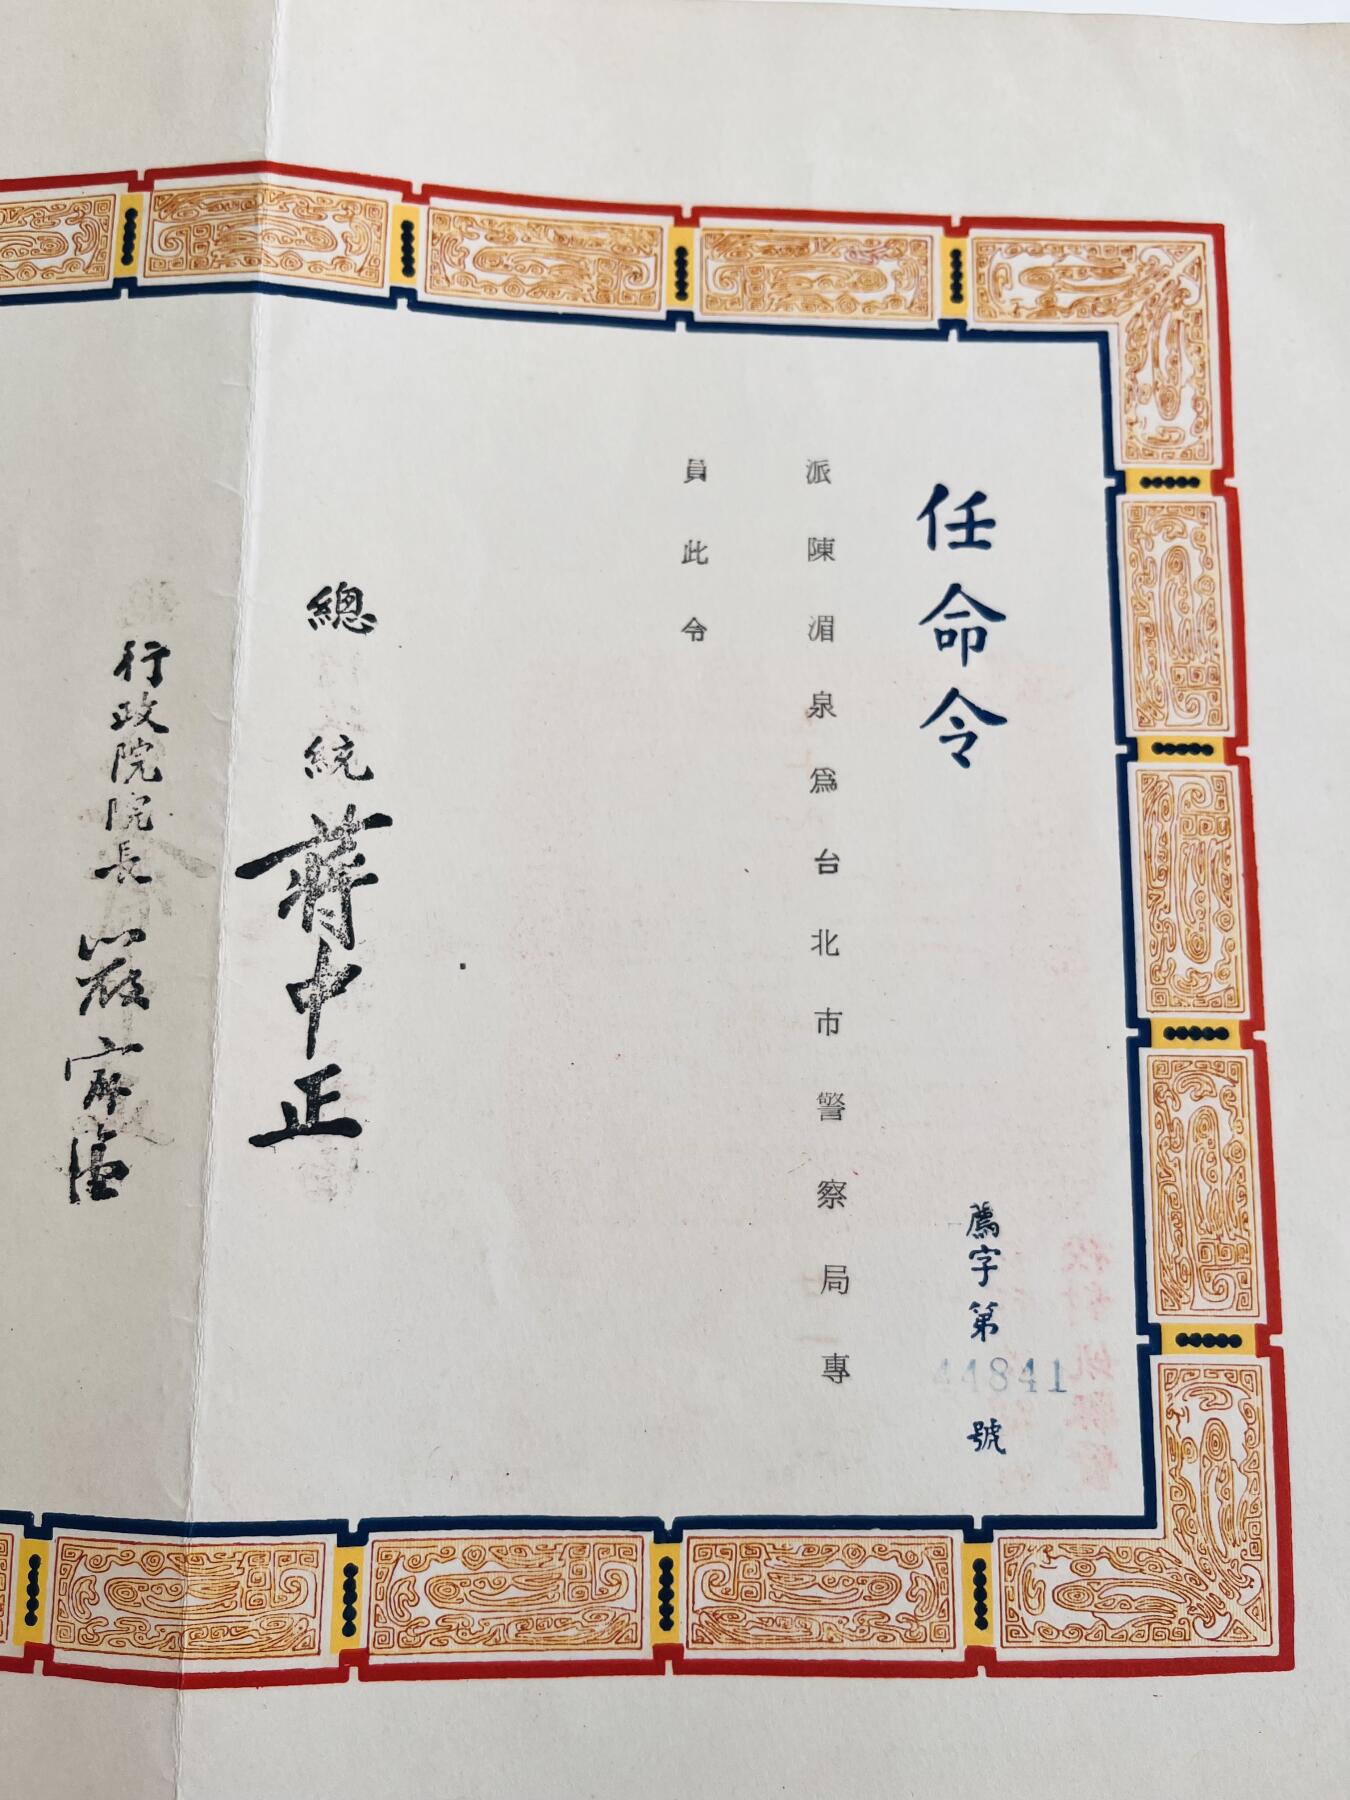 任命令
薦字第44841號
派陳湄泉爲台北市警察局專
員此令
總統蔣中正
行政院院長嚴家淦